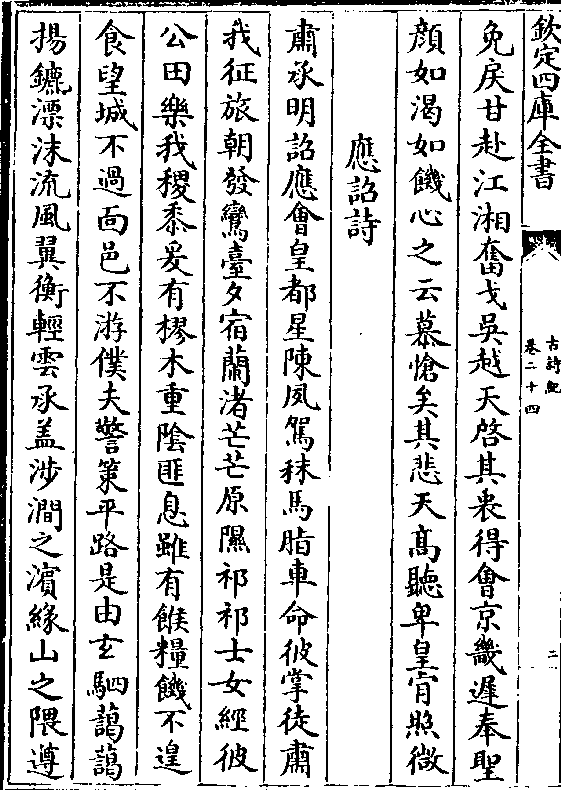 欽定四庫全書
古詩紀
卷二十四
二
免戾甘赴江湘奮戈吳越天啓其衷得會京畿遲奉聖
顔如渴如饑心之云慕愴矣其悲天髙聽卑皇肯照微
應詔詩
肅承明詔應會皇都星陳夙駕秣馬脂車命彼掌徒肅
我征旅朝發鸞臺夕宿蘭渚芒芒原隰祁祁士女經彼
公田樂我稷黍爰有樛木重陰匪息雖有餱糧饑不遑
食望城不過面邑不游僕夫警策平路是由玄駟藹藹
揚鑣漂沫流風翼衡輕雲承盖涉澗之濱緣山之隈遵